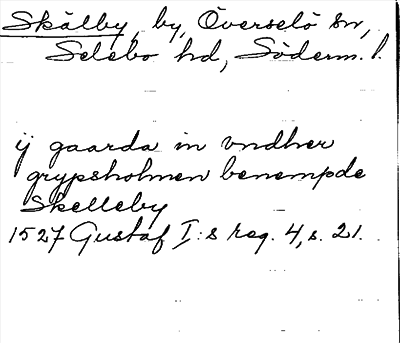 Skälby, by, Överselö sn,
Selebo hd, Söderm. l.
ij gaarda in vndher
grypsholmen benempde
Skelleby
1527 Gustaf I:s reg. 4, s. 21.